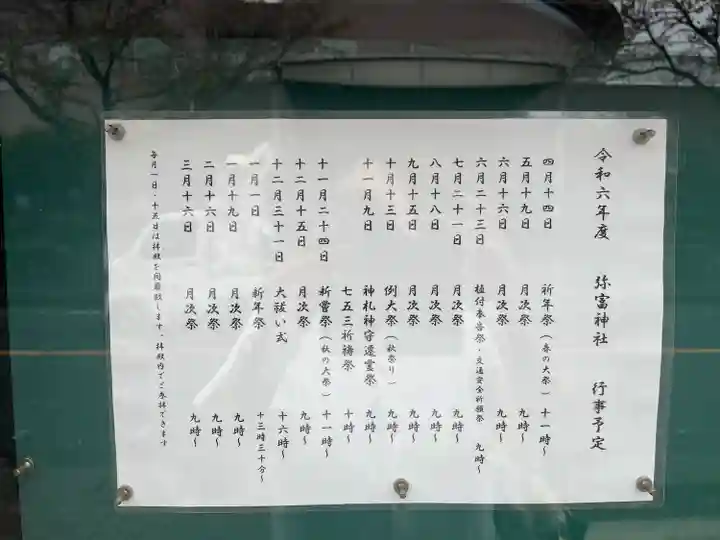 令和六年度 弥富神社 行事予定
四月十四日 祈年祭(春の大祭) 十一時〜
五月十九日 月次祭 九時〜
六月十六日 月次祭 九時〜
六月二十三日 植付奉告祭・交通安全祈願祭 九時〜
七月二十一日 月次祭 九時〜
八月十八日 月次祭 九時〜
九月十五日 月次祭 九時〜
十月十三日 例大祭(秋祭り) 九時〜
十一月九日 神札神守遷霊祭 九時〜
七五三祈祷祭 十時〜
十一月二十四日 新嘗祭(秋の大祭) 十一時〜
十二月十五日 月次祭 九時〜
十二月三十一日 大祓い式 十六時〜
一月一日 新年祭 十三時三十分〜
一月十九日 月次祭 九時〜
二月十六日 月次祭 九時〜
三月十六日 月次祭 九時〜
毎月一日・十五日は拝殿を開扉致します、拝殿内でご参拝できます